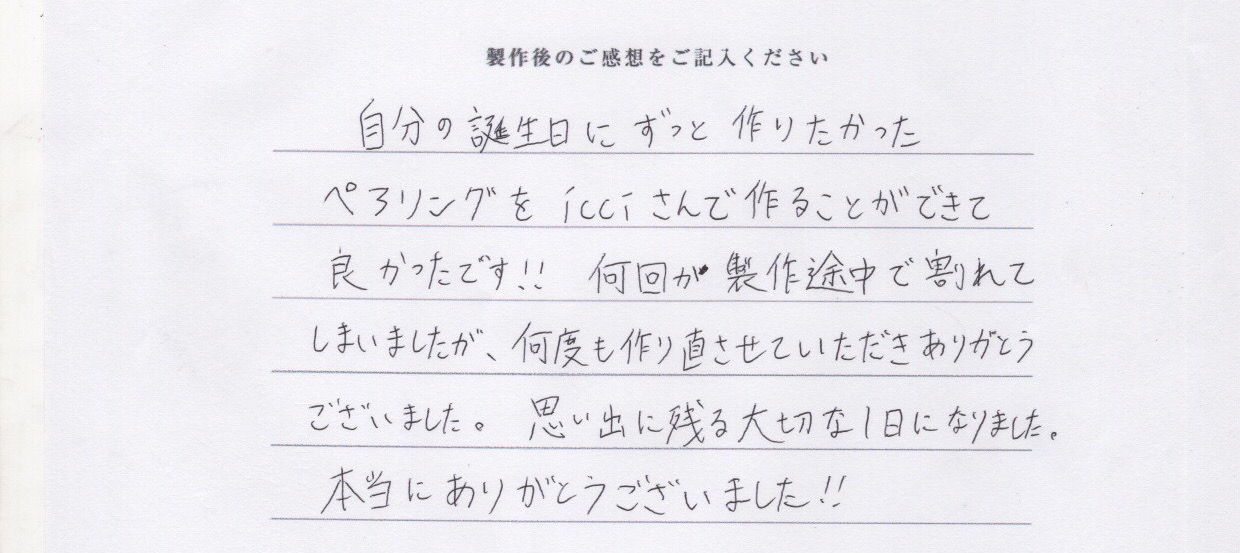 製作後のご感想をご記入ください
自分の誕生日にずっと作りたかった
ペアリングをicciさんで作ることができて
良かったです!! 何回か製作途中で割れて
しまいましたが、何度も作り直させていただきありがとう
ございました。 思い出に残る大切な1日になりました。
本当にありがとうございました!!